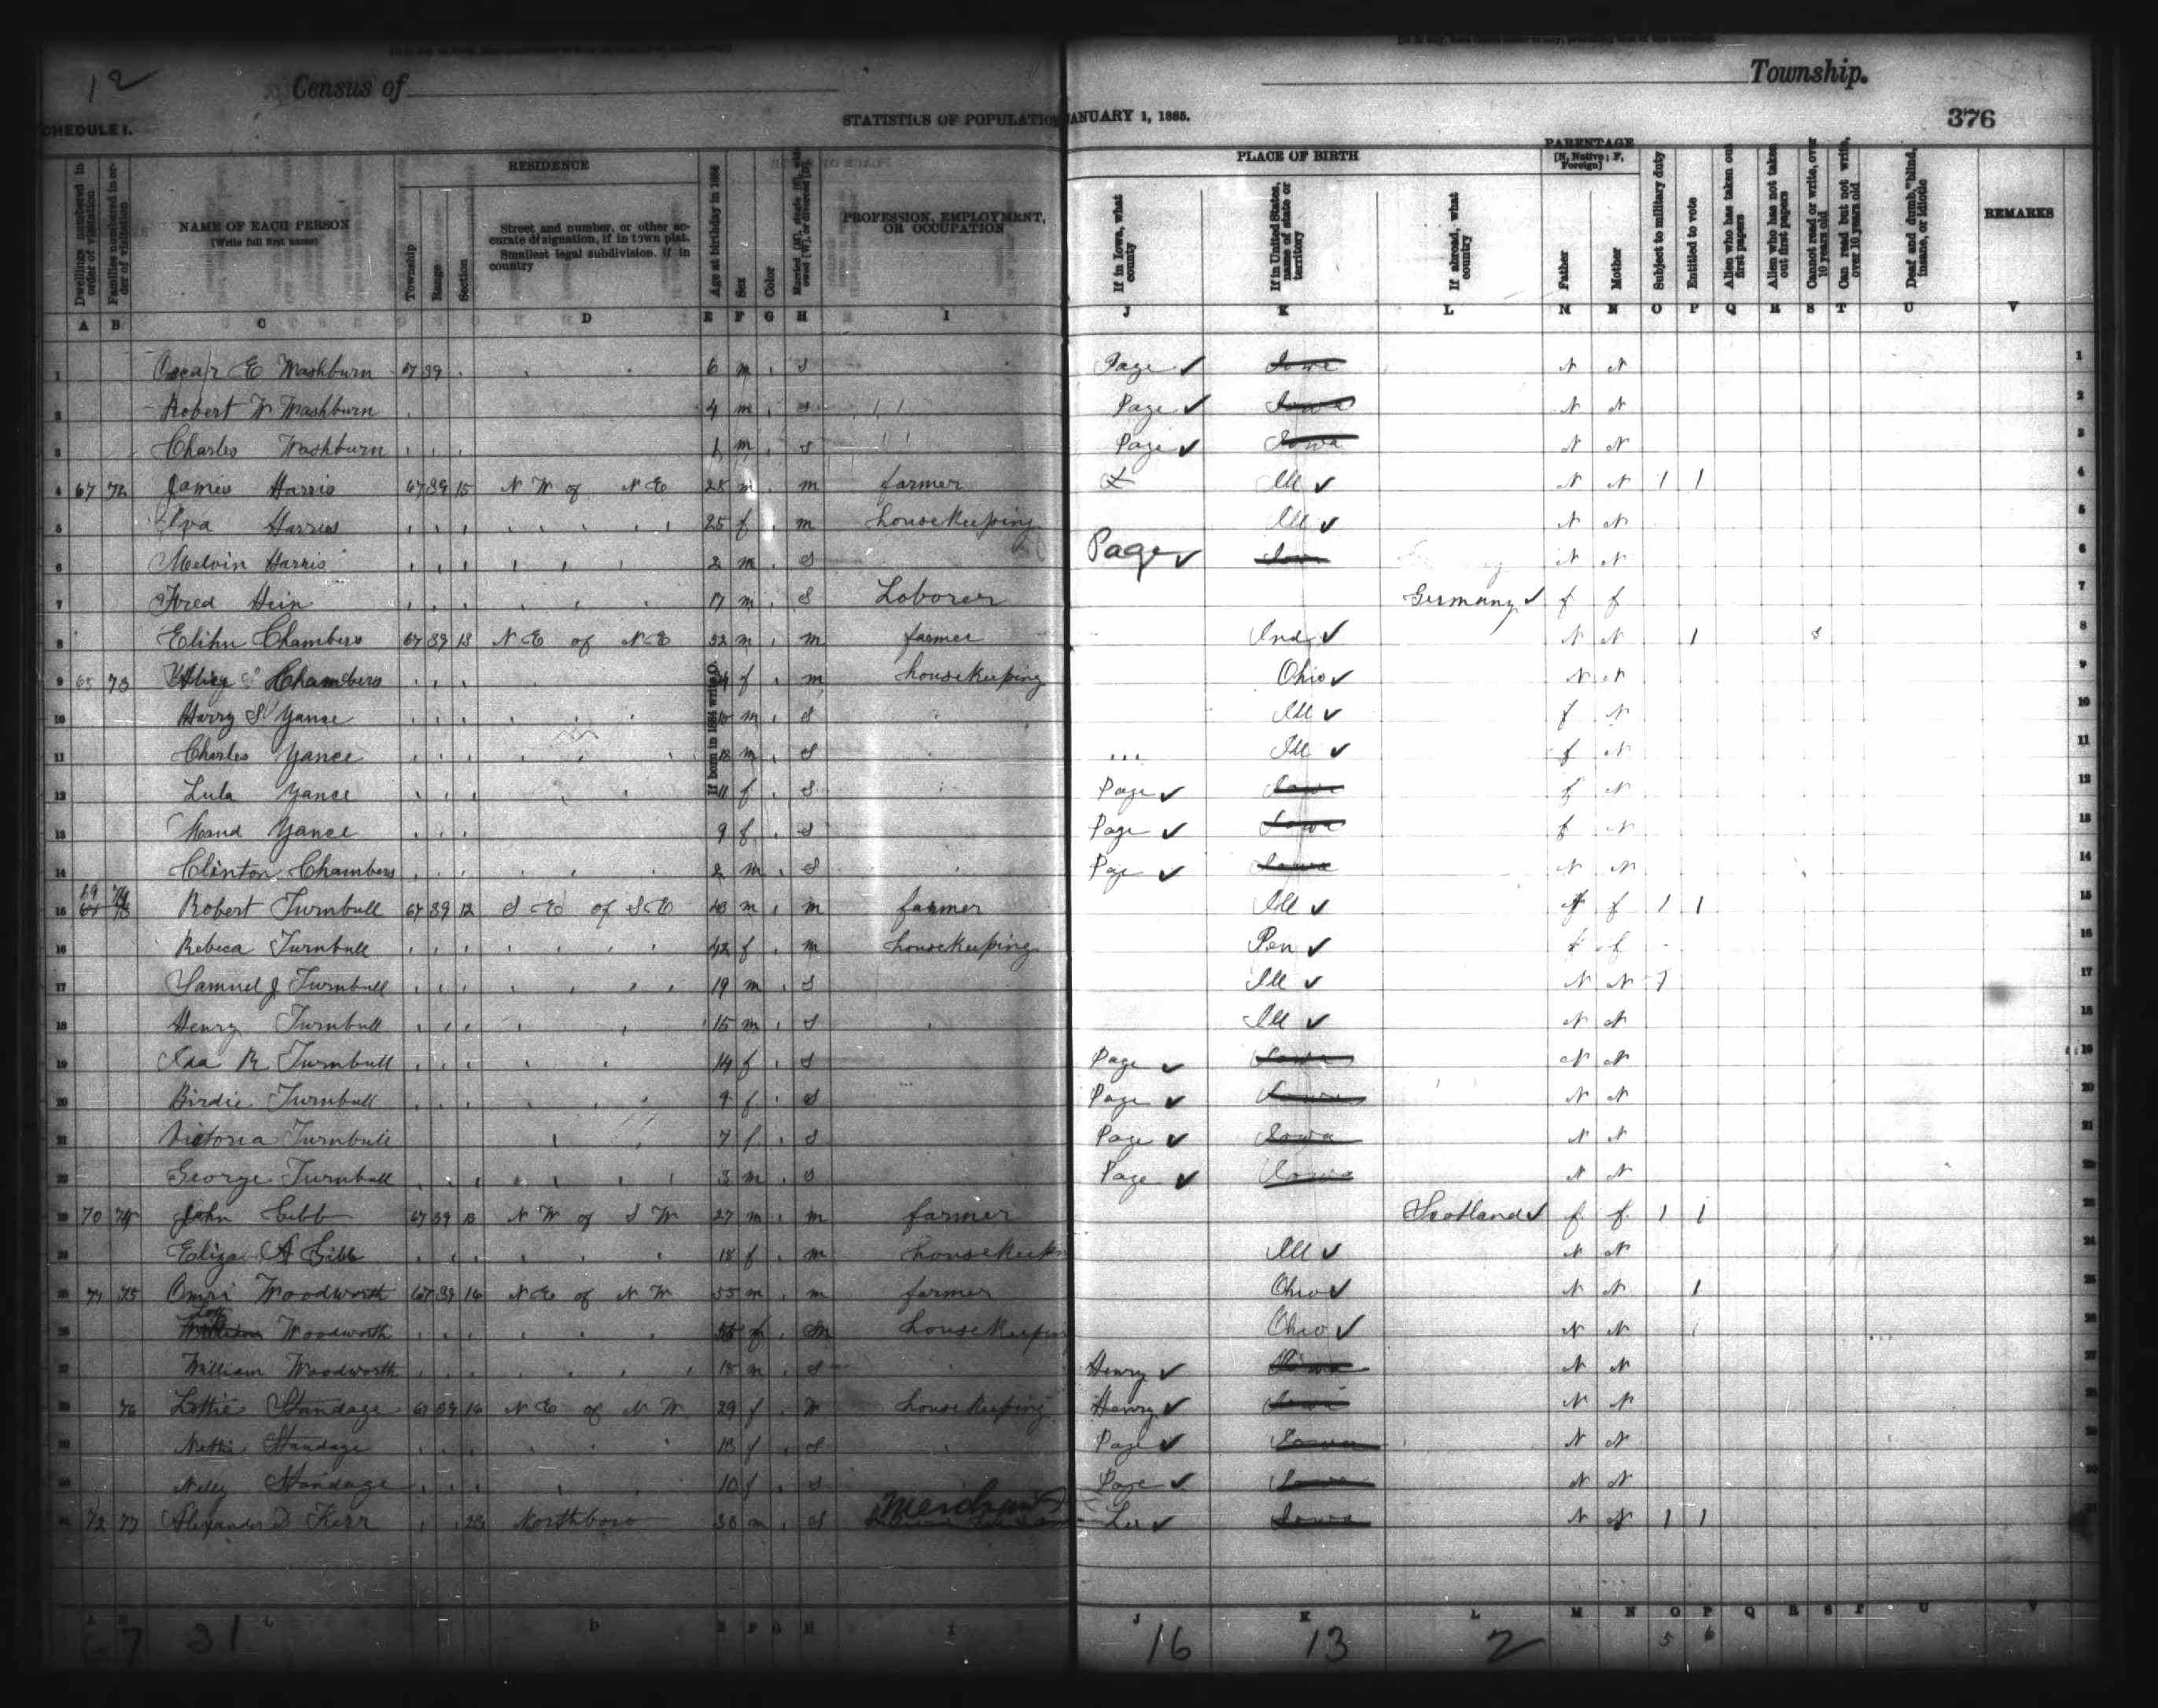 12
Census of
Township.
SCHEDULE I.
STATISTICS OF POPULATION JANUARY 1, 1885.
376
Dwellings numbered in order of visitation
Families numbered in order of visitation
NAME OF EACH PERSON
(Write full first name)
RESIDENCE
Township
Range
Section
Street and number, or other accurate designation, if in town plat. Smallest legal subdivision, if in country
Age at birthday in 1884
Sex
Color
PROFESSION, EMPLOYMENT, OR OCCUPATION
PLACE OF BIRTH
If in Iowa, what county
If in United States, name of state or territory
If abroad, what country
PARENTAGE
[N, Native; F, Foreign]
Father
Mother
Subject to military duty
Entitled to vote
Alien who has taken out first papers
Alien who has not taken out first papers
Cannot read or write, over 10 years old
Can read but not write, over 10 years old
Deaf and dumb, blind, insane, or idiotic
REMARKS
A B C D E F G H I J K L M N O P Q R S T U V
If born in 1884 write 0.
1 Oscar E Washburn 67 39 6 m S Page ✓ Iowa N N 1
2 Robert W Washburn 4 m S Page ✓ Iowa N N 2
3 Charles Washburn 1 m S Page ✓ Iowa N N 3
4 67 72 James Harris 67 39 15 N W of N E 28 m m farmer Ill ✓ N N 1 1 4
5 Harris 25 f m housekeeping Ill ✓ N N 5
6 Melvin Harris 2 m S Page ✓ Iowa N N 6
7 Fred Hein 17 m S Loborer Germany ✓ f f 7
8 Elihu Chambers 67 39 13 N E of N E 52 m m farmer Ind ✓ N N 1 8
9 73 Chambers f m housekeeping Ohio ✓ N N 9
10 Harry S Yance m S Ill ✓ f N 10
11 Charles Yance 13 m S Ill ✓ f N 11
12 Lula Yance 11 f S Page ✓ Iowa f N 12
13 Maud Yance 9 f S Page ✓ Iowa f N 13
14 Clinton Chambers 2 m S Page ✓ Iowa N N 14
15 69 Robert Turnbull 67 39 12 S E of S E 43 m m farmer Ill ✓ f f 1 1 15
16 Rebeca Turnbull 42 f m housekeeping Pen ✓ f f 16
17 Samuel J Turnbull 19 m S Ill ✓ N N 1 17
18 Henry Turnbull 15 m S Ill ✓ N N 18
19 Ida R Turnbull 14 f S Page ✓ Iowa N N 19
20 Birdie Turnbull 9 f S Page ✓ Iowa N N 20
21 Victoria Turnbull 7 f S Page ✓ Iowa N N 21
22 George Turnbull 3 m S Page ✓ Iowa N N 22
23 70 74 John Gibb 67 39 13 N W of S W 27 m m farmer Scotland ✓ f f 1 1 23
24 Eliza A Gibb 18 f m Ill ✓ N N 24
25 71 75 Omri Woodworth 67 39 16 N E of N W 55 m m farmer Ohio ✓ N N 1 25
26 Woodworth f m Ohio ✓ N N 26
27 William Woodworth 18 m S Henry ✓ Iowa N N 27
28 76 Lottie Standage 67 39 16 N E of N W 29 f W housekeeping Henry ✓ Iowa N N 28
29 Nettie Standage 13 f S Page ✓ Iowa N N 29
30 Nelly Standage 10 f S Page ✓ Iowa N N 30
72 77 Alexander D Kerr 23 Northboro 38 m S Merchant Lee ✓ Iowa N N 1 1
7 31 16 13 2 5 6